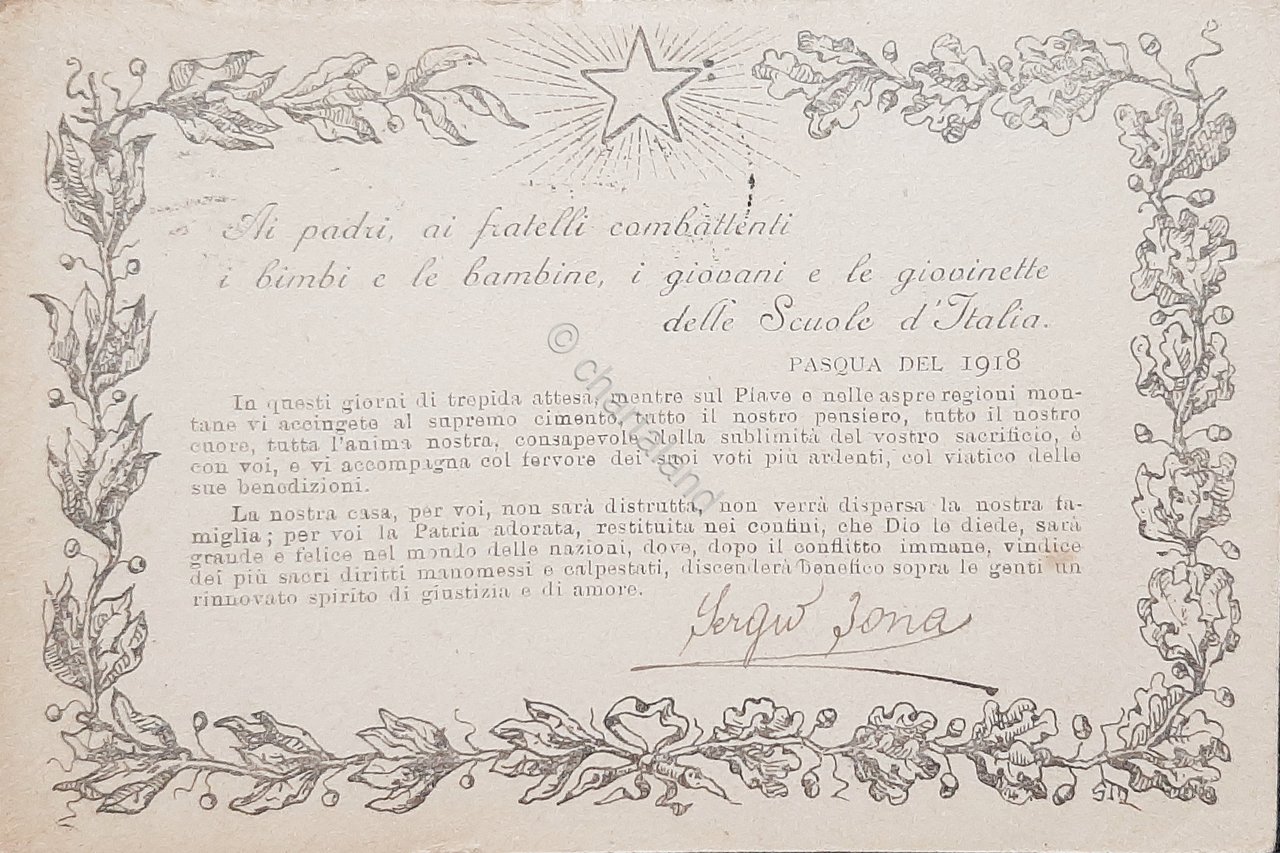 Ai padri, ai fratelli combattenti
i bimbi e le bambine, i giovani e le giovinette
delle Scuole d'Italia.
PASQUA DEL 1918
In questi giorni di trepida attesa, mentre sul Piave e nelle aspre regioni mon-
tane vi accingete al supremo cimento, tutto il nostro pensiero, tutto il nostro
cuore, tutta l'anima nostra, consapevole della sublimità del vostro sacrificio, è
con voi, e vi accompagna col fervore dei suoi voti più ardenti, col viatico delle
sue benedizioni.
La nostra casa, per voi, non sarà distrutta, non verrà dispersa la nostra fa-
miglia; per voi la Patria adorata, restituita nei confini, che Dio le diede, sarà
grande e felice nel mondo delle nazioni, dove, dopo il conflitto immane, vindice
dei più sacri diritti manomessi e calpestati, discenderà benefico sopra le genti un
rinnovato spirito di giustizia e di amore.
Sergio Zona
© chartaland